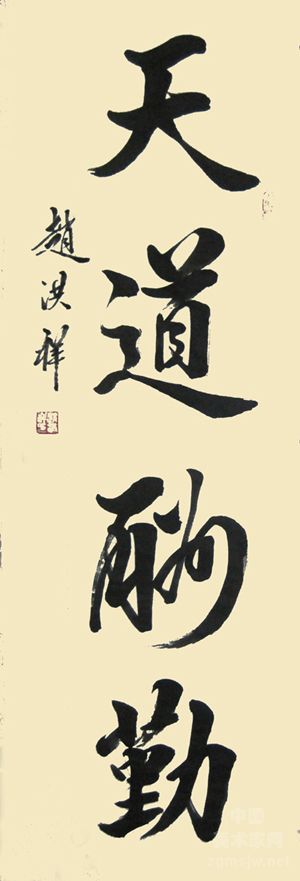 天道酬勤
趙洪祥
中国
美术家网
zgmsjw.net